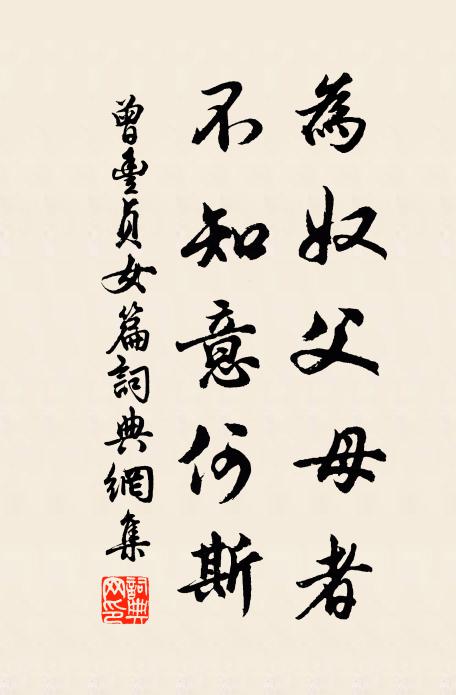 為奴父母者
不知意何斯
曾豐貞女篇詞典網集
詞典網印